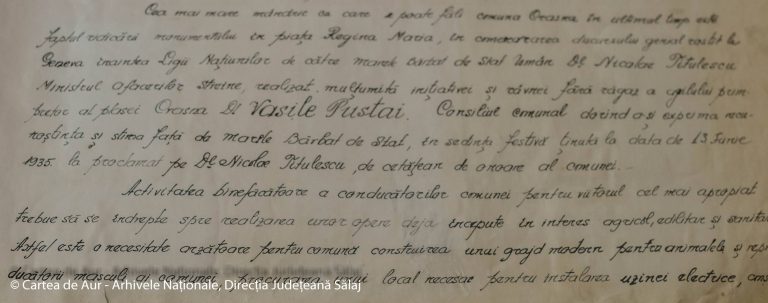 Cea mai mare mândrie cu care se poate făli comuna Crasna în ultimul timp este
faptul ridicării monumentului în piața Regina Maria, în comemorarea discursului genial rostit la
Geneva înaintea Ligii Națiunilor de către marele bărbat de Stat Român Dl. Nicolae Titulescu
Ministrul afacerilor streine, realizat mulțumită inițiativei și râvnei fără răgaz a agilului prim
pretor al plasei Crasna Dl Vasile Pustai. Consiliul comunal dorind a-și exprima recu-
noștința și stima față de marele Bărbat de Stat, în ședința festivă ținută la data de 13 Iunie
1935. la proclamat pe Dl. Nicolae Titulescu, de cetățean de onoare al comunei. -
Activitatea binefăcătoare a conducătorilor comunei pentru viitorul cel mai apropiat
trebue să se îndrepte spre realizarea unor opere deja începute în interes agricol, edilitar și sanitar
Astfel este o necesitate arzătoare pentru comună construirea unui grajd modern pentru animalele și repro
ducătorii masculi ai comunei, procurarea unui local necesar pentru instalarea uzinei electrice, cons
© Cartea de Aur - Arhivele Naționale, Direcția Județeană Sălaj